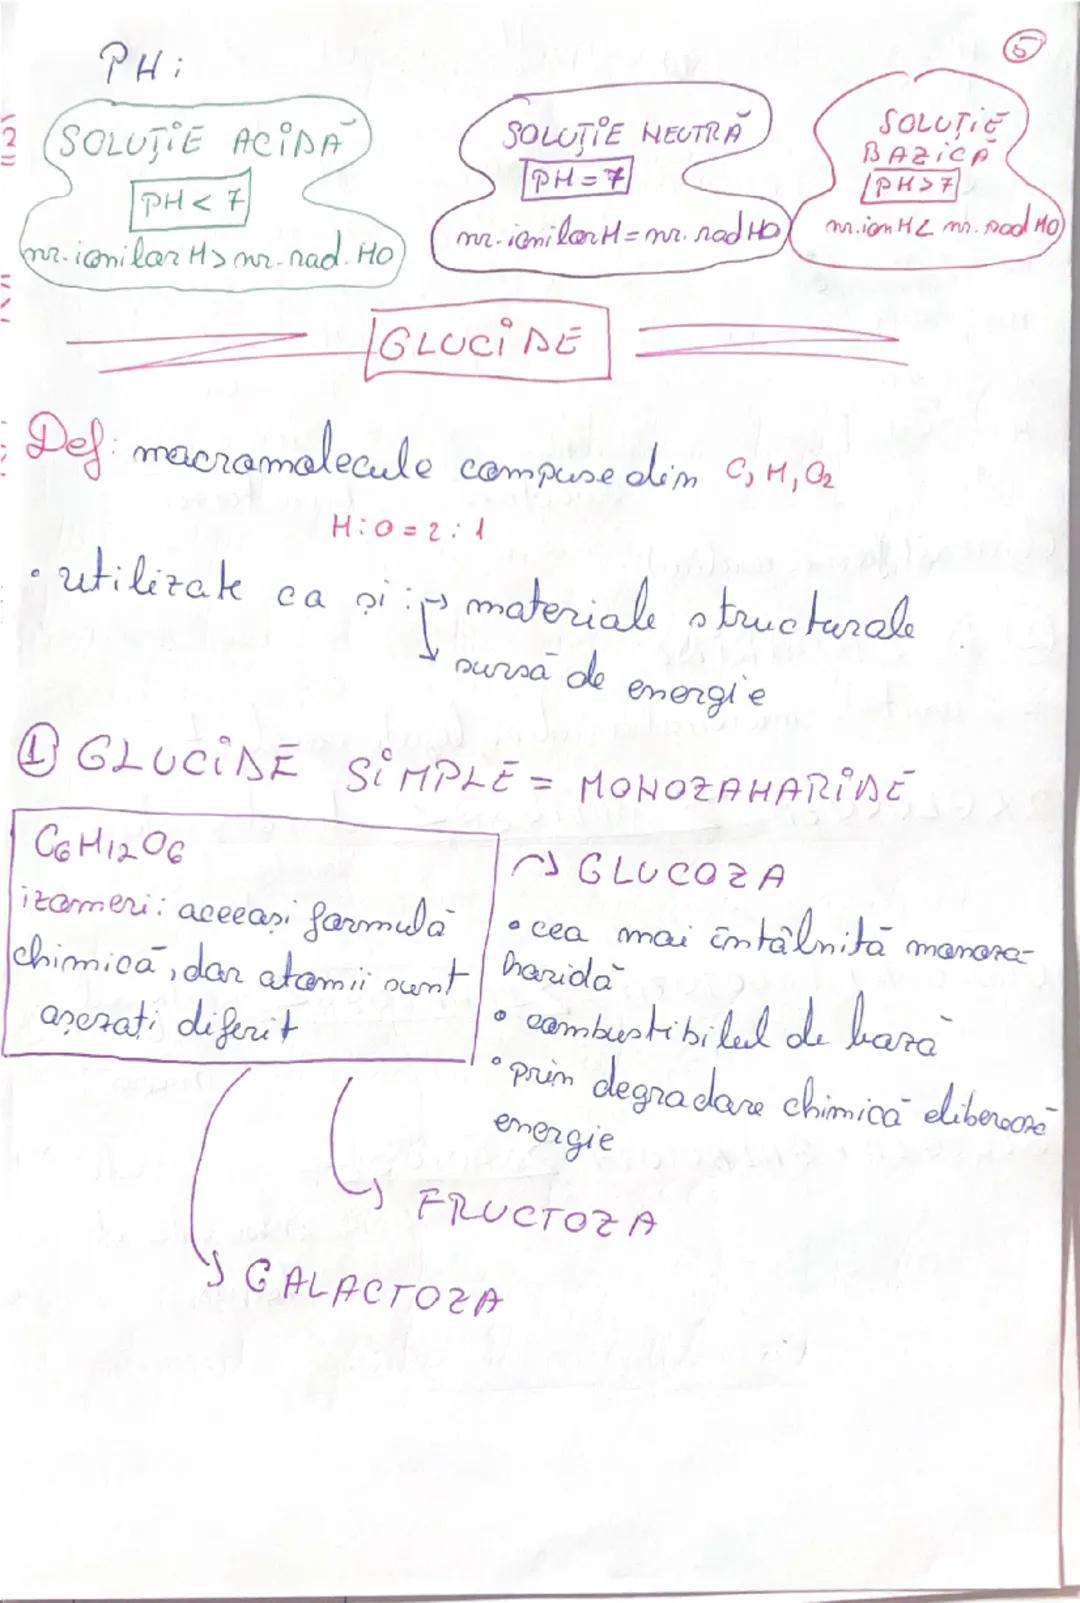 5
PH:
SOLUȚIE ACIDĂ
PH < 7
nr. ionilor H > nr. rad. HO
SOLUȚIE NEUTRĂ
PH = 7
nr. ionilor H = nr. rad HO
SOLUȚIE
BAZICĂ
PH > 7
nr. ion H < nr. rad HO
GLUCIDE
Def: macromolecule compuse din C, H, O2
H:O = 2:1
• utilizate ca și: → materiale structurale
↓ sursă de energie
① GLUCIDE SIMPLE = MONOZAHARIDE
C6H12O6
izomeri: aceeași formulă
chimică, dar atomii sunt
așezați diferit
→ GLUCOZA
• cea mai întâlnită monoza-
haridă
• combustibilul de bază
• prin degradare chimică eliberează
energie
→ FRUCTOZA
→ GALACTOZA